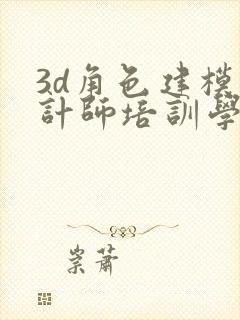 3d角色建模
計師培訓學
崇蕭